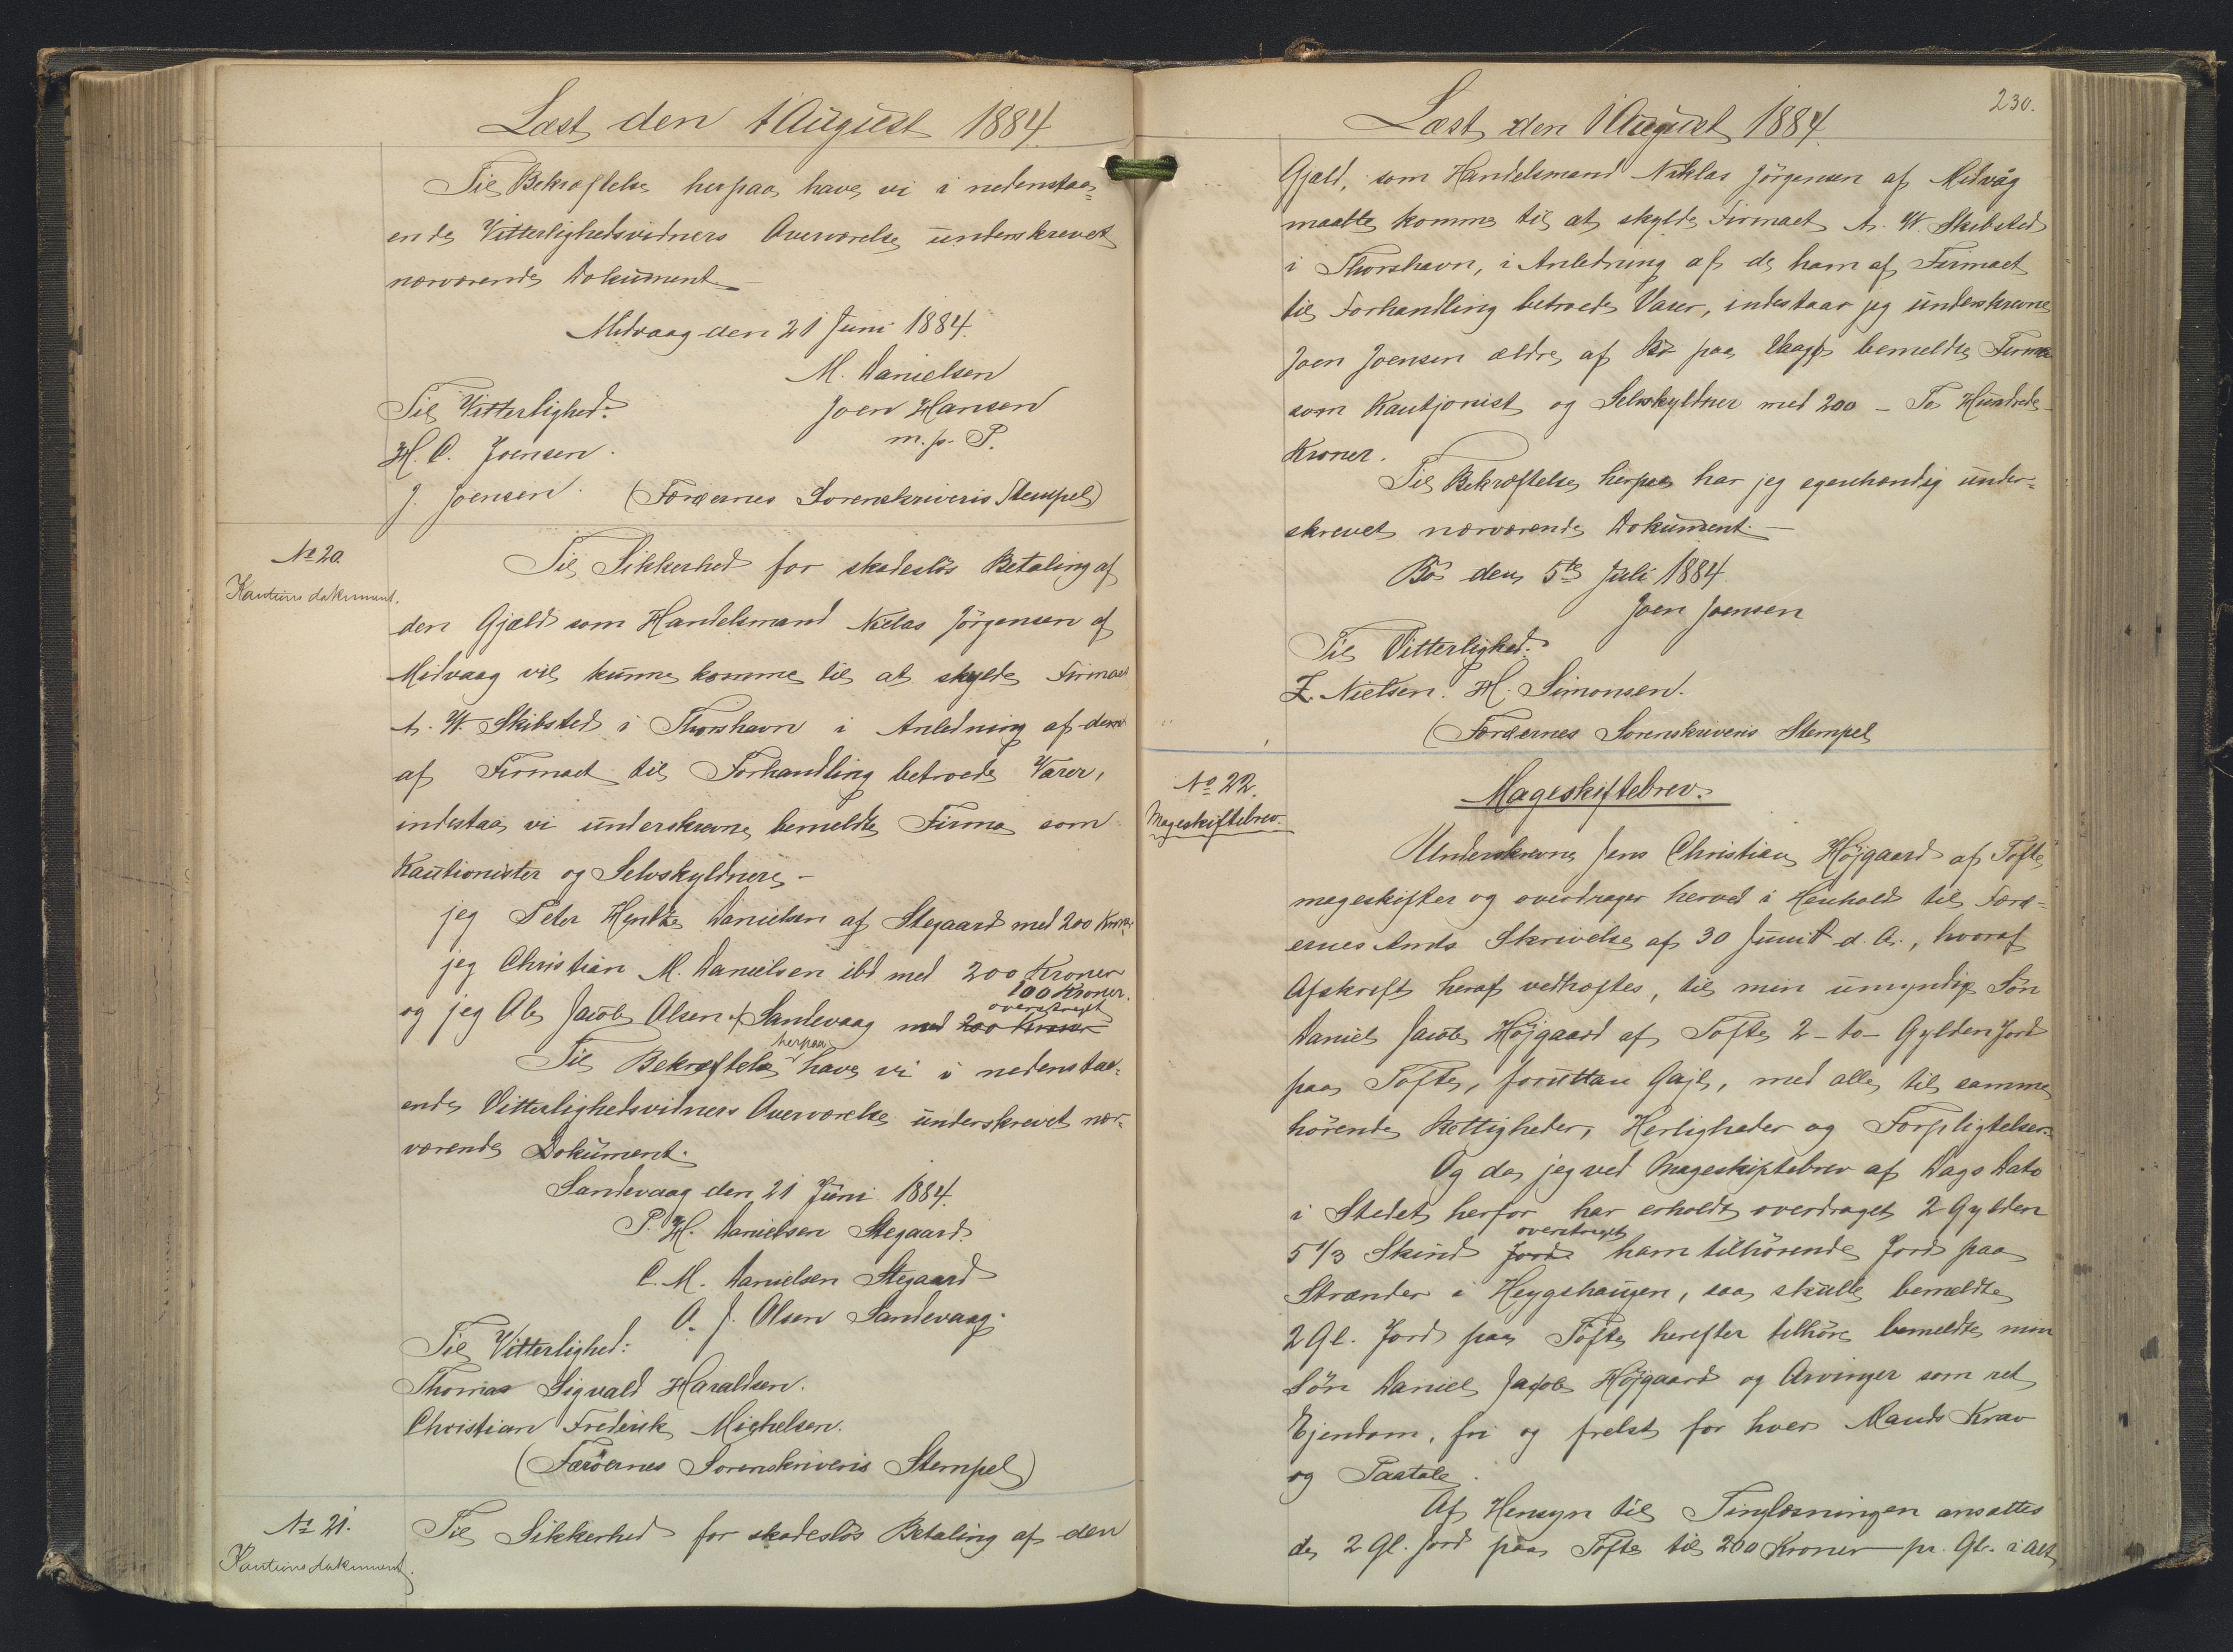 Læst den 1 August 1884.
Til Bekræftelse herpaa have vi i nedenstaa=
ende Vitterlighedsvidners Overværelse underskrevet
nærværende Dokument.
Midvaag den 21 Juni 1884.
M. Danielsen
Til Vitterlighed:
Joen Hansen
m. p. P.
H. C. Joensen.
J. Joensen. (Færøernes Sorenskriveris Stempel)
No 20.
Kautions dokument.
Til Sikkerhed for skadesløs Betaling af
den Gjæld som Handelsmand Niclas Jörgensen af
Midvaag vil kunne komme til at skylde Firmaet
A. W. Skibsted i Thorshavn i Anledning af dem
af Firmaet til Forhandling betroede Varer,
indestaa vi underskrevne bemeldte Firma som
Kautionister og Selvskyldnere -
jeg Peter Hentze Danielsen af Stegaard med 200 Kroner
jeg Christian M. Danielsen ibd med 200 Kroner
100 Kroner.
overstreget
og jeg Ole Jacob Olsen af Sandevaag med 200 Kroner
herpaa
Til Bekræftelse have vi i nedenstaa=
ende Vitterlighedsvidners Overværelse underskrevet nær=
værende Dokument.
Sandevaag den 21 Juni 1884.
P. H. Danielsen Stegaard.
C. M. Danielsen Stegaard
O. J. Olsen Sandevaag.
Til Vitterlighed:
Thomas Sigvald Haraldsen.
Christian Frederik Michelsen.
(Færöernes Sorenskriveris Stempel)
No 21.
Kautions dokument.
Til Sikkerhed for skadeslös Betaling af den
230.
Læst den 1 August 1884.
Gjæld, som Handelsmand Niklas Jörgensen af Midvåg
maatte komme til at skylde Firmaet A. W. Skibsted
i Thorshavn, i Anledning af de ham af Firmaet
til Forhandling betroede Varer, indestaar jeg underskrevne
Joen Joensen ældre af Bø paa Vaagø bemeldte Firma
som Kautjonist og Selvskyldner med 200 - To Hundrede
Kroner.
Til Bekræftelse herpaa har jeg egenhændig under=
skrevet nærværende Dokument. -
Bö den 5te Juli 1884.
Joen Joensen
Til Vitterlighed:
Z. Nielsen. H. Simonsen.
(Færøernes Sorenskriveris Stempel
No 22.
Mageskiftebrev.
Mageskiftebrev.
Underskrevne Jens Christian Højgaard af Tofte
mageskifter og overdrager herved i Henhold til Færø=
ernes Amts Skrivelse af 30 Juni d. A., hvoraf
Afskrift heraf vedhæftes, til min umyndige Sön
Daniel Jacob Højgaard af Tofte 2 - to - Gylden Jord
paa Tofte, foruttan Gajl, med alle til samme
hörende Rettigheder, Herligheder og Forpligtelser.
Og da jeg ved Mageskiftebrev af Dags Dato
i Stedet herfor har erholdt overdraget 2 Gylden
overstreget
5 1/3 Skind Jord ham tilhörende Jord paa
Strænder i Heygshaugen, saa skulle bemeldte
2 Gl. Jord paa Tofte herefter tilhöre bemeldte min
Sön Daniel Jacob Højgaard og Arvinger som ret
Ejendom, fri og frelst for hver Mands Krav
og Paatale.
Af Hensyn til Tinglæsningen ansættes
de 2 Gl. Jord paa Tofte til 200 Kroner pr. Gl. i alt